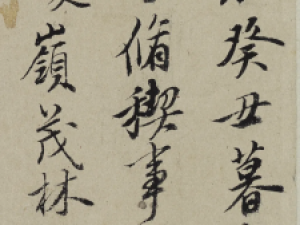 癸丑暮
脩稧事
嶺茂林